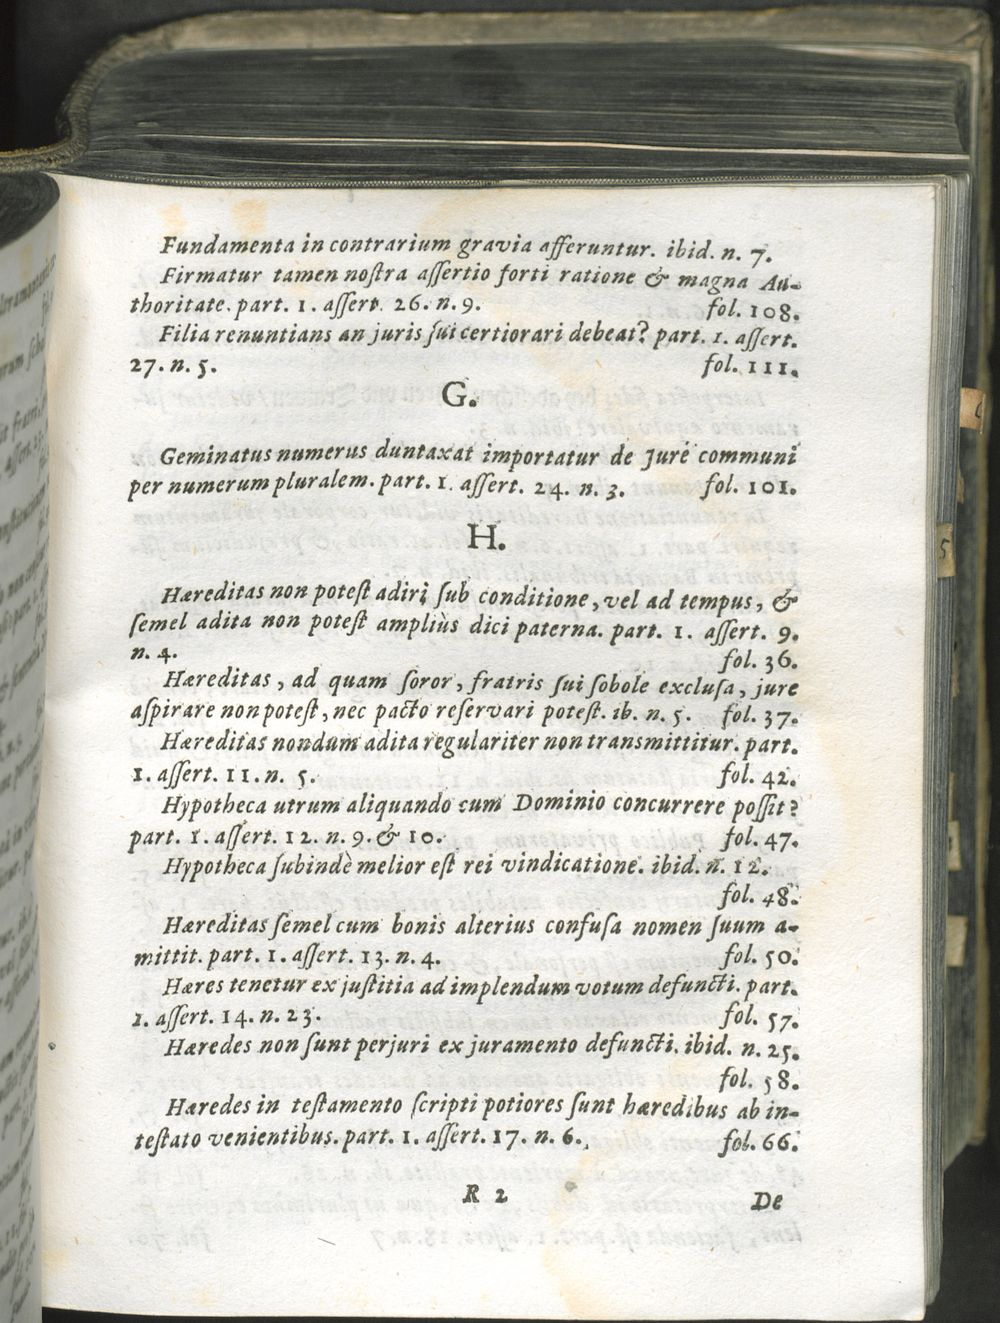 Fundamenta in contrarium gravia afferuntur. ibid. n. 7.
Firmatur tamen noſtra aſſertio forti ratione & magna Au-
thoritate. part. 1. aſſert. 26. n. 9. fol. 108.
Filia renuntians an juris ſui certiorari debeat? part. 1. aſſert.
27. n. 5. fol. 111.
G.
Geminatus numerus duntaxat importatur de Jure communi
per numerum pluralem. part. 1. aſſert. 24. n. 3. fol. 101.
H.
Hæreditas non poteſt adiri ſub conditione, vel ad tempus, &
ſemel adita non poteſt ampliùs dici paterna. part. 1. aſſert. 9.
n. 4. fol. 36.
Hæreditas, ad quam ſoror, fratris ſui ſobole excluſa, jure
aſpirare non poteſt, nec pacto reſervari poteſt. ib. n. 5. fol. 37.
Hæreditas nondum adita regulariter non transmittitur. part.
1. aſſert. 11. n. 5. fol. 42.
Hypotheca utrum aliquando cum Dominio concurrere poſſit?
part. 1. aſſert. 12. n. 9. & 10. fol. 47.
Hypotheca ſubindè melior eſt rei vindicatione. ibid. n. 12.
fol. 48.
Hæreditas ſemel cum bonis alterius confuſa nomen ſuum a-
mittit. part. 1. aſſert. 13. n. 4. fol. 50.
Hæres tenetur ex juſtitia ad implendum votum defuncti. part.
1. aſſert. 14. n. 23. fol. 57.
Hæredes non ſunt perjuri ex juramento defuncti. ibid. n. 25.
fol. 58.
Hæredes in teſtamento ſcripti potiores ſunt hæredibus ab in-
teſtato venientibus. part. 1. aſſert. 17. n. 6. fol. 66.
R 2 De